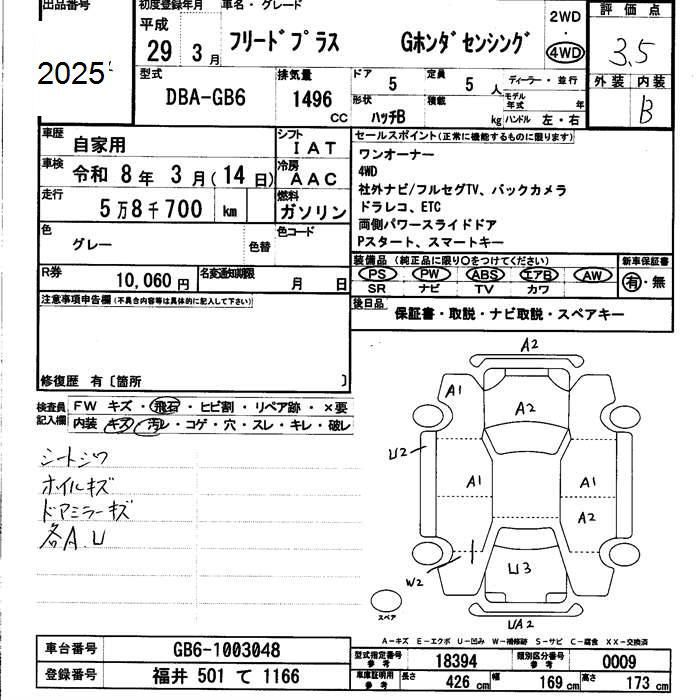 出品番号
2025
初度登録年月
平成
29年 3月
車名・グレード
フリードプラス Gホンダセンシング
2WD
・
4WD
評価点
3.5
外装 内装
B
型式
DBA-GB6
排気量
1496 cc
ドア
5
定員
5 人
ディーラー・並行
形状
ハッチB
積載
kg
モデル年式
年
ハンドル 左・右
車歴
自家用
シフト
IAT
車検
令和 8年 3月(14日)
冷房
AAC
走行
5万8千700 km
燃料
ガソリン
色
グレー
色替
色コード
セールスポイント(正常に機能するものに限ります)
ワンオーナー
4WD
社外ナビ/フルセグTV、バックカメラ
ドラレコ、ETC
両側パワースライドドア
Pスタート、スマートキー
装備品(純正品に限り○をつけてください)
PS PW ABS エアB AW
SR ナビ TV カワ
新車保証書
有・無
R券
10,060円
名変通知期限
月 日
後日品
保証書・取説・ナビ取説・スペアキー
注意事項申告欄(不具合内容等は具体的に記入して下さい)
修復歴 有〔箇所 〕
検査員記入欄
FW キズ・飛石・ヒビ割・リペア跡・×要
内装 キズ・汚レ・コゲ・穴・スレ・キレ・破レ
シートシワ
ホイルキズ
ドアミラーキズ
各A.U
A2
A1
A2
U2
A1
A1
A2
W2
U3
UA2
スペア
A-キズ E-エクボ U-凹み W-補修跡 S-サビ C-腐食 XX-交換済
車台番号
GB6-1003048
登録番号
福井 501 て 1166
型式指定番号
参考
18394
類別区分番号
参考
0009
車庫証明用
参考
長さ
426 cm
幅
169 cm
高さ
173 cm